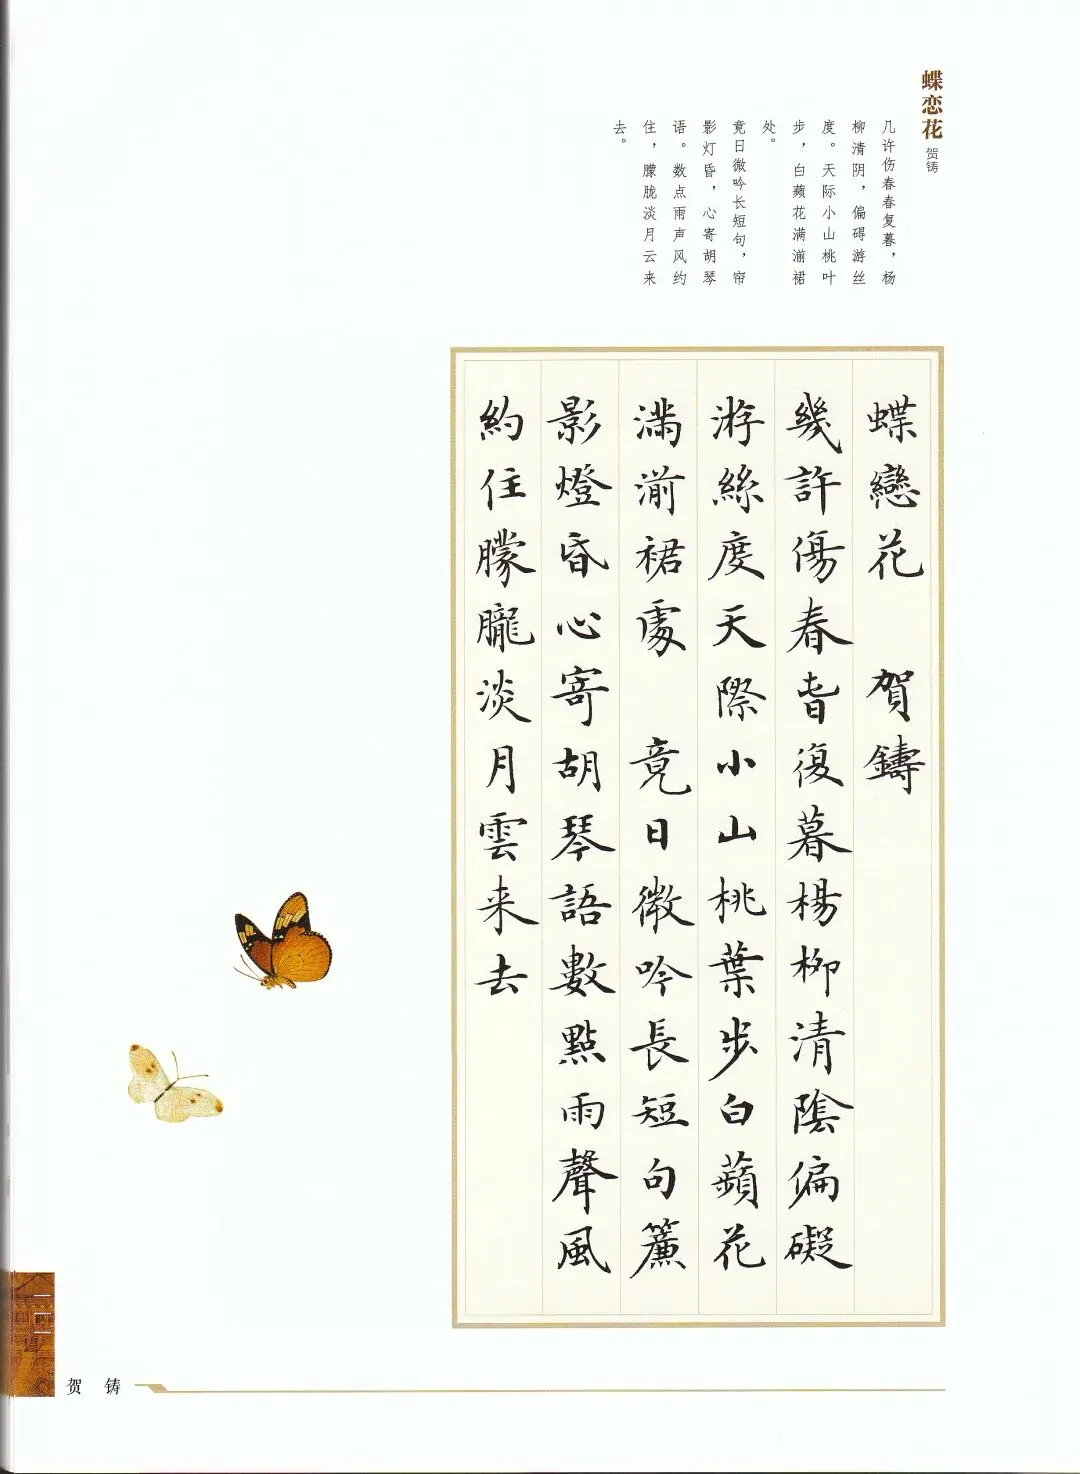 蝶恋花
贺铸
几许伤春春复暮，杨
柳清阴，偏碍游丝
度。天际小山桃叶
步，白蘋花满湔裙
处。
竟日微吟长短句，帘
影灯昏，心寄胡琴
语。数点雨声风约
住，朦胧淡月云来
去。
蝶戀花 賀鑄
幾許傷春春復暮楊柳清陰偏礙
游絲度天際小山桃葉步白蘋花
滿湔裙處 竟日微吟長短句簾
影燈昏心寄胡琴語數點雨聲風
約住朦朧淡月雲来去
贺 铸